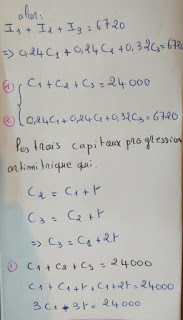 alors:
I1 + I2 + I3 = 6720
=> 0,24C1 + 0,24C2 + 0,32C3 = 6720
① C1 + C2 + C3 = 24 000
② 0,24C1 + 0,24C2 + 0,32C3 = 6720
Les trois capitaux progression
artimitrique qui.
C2 = C1 + r
C3 = C2 + r
=> C3 = C1 + 2r
① C1 + C2 + C3 = 24000
C1 + C1 + r + C1 + 2r = 24000
3C1 + 3r = 24000